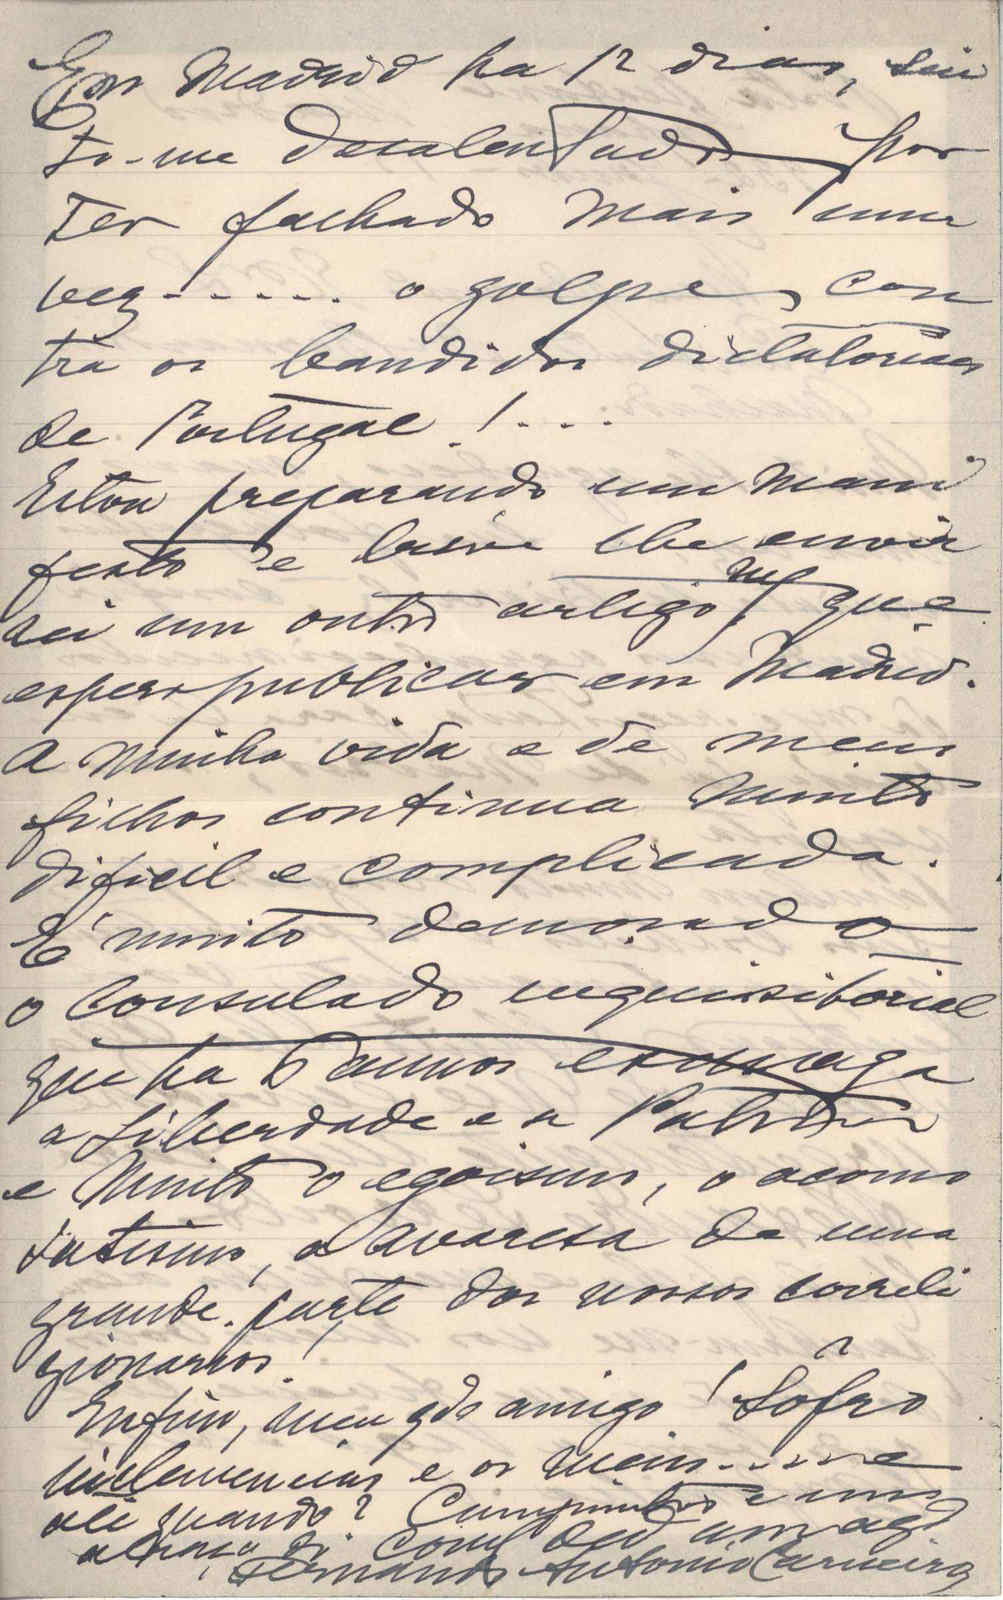 Em Madrid ha 12 dias, sin
to-me desalentado por
ter falhado mais uma
vez...... o golpe, con
tra os bandidos dictatoriaes
de Portugal!...
Estou preparando um mani
festo e breve lhe envia
rei um outro artigo, que
espero publicar em Madrid.
A minha vida e de meus
filhos continua muito
dificil e complicada.
É muito demorado
o consulado inquisitorial
que ha 6 annos esmaga
a Liberdade e a Patria
e muito o egoismo, o acomo
datismo, a avaresa de uma
grande parte dos nossos correli
gionarios!
Enfim, meu gde amigo! Sôfro
inclemencias e os meus.....
até quando? Cumprimentos e um
abraço do
Fernando Antonio Carneiro